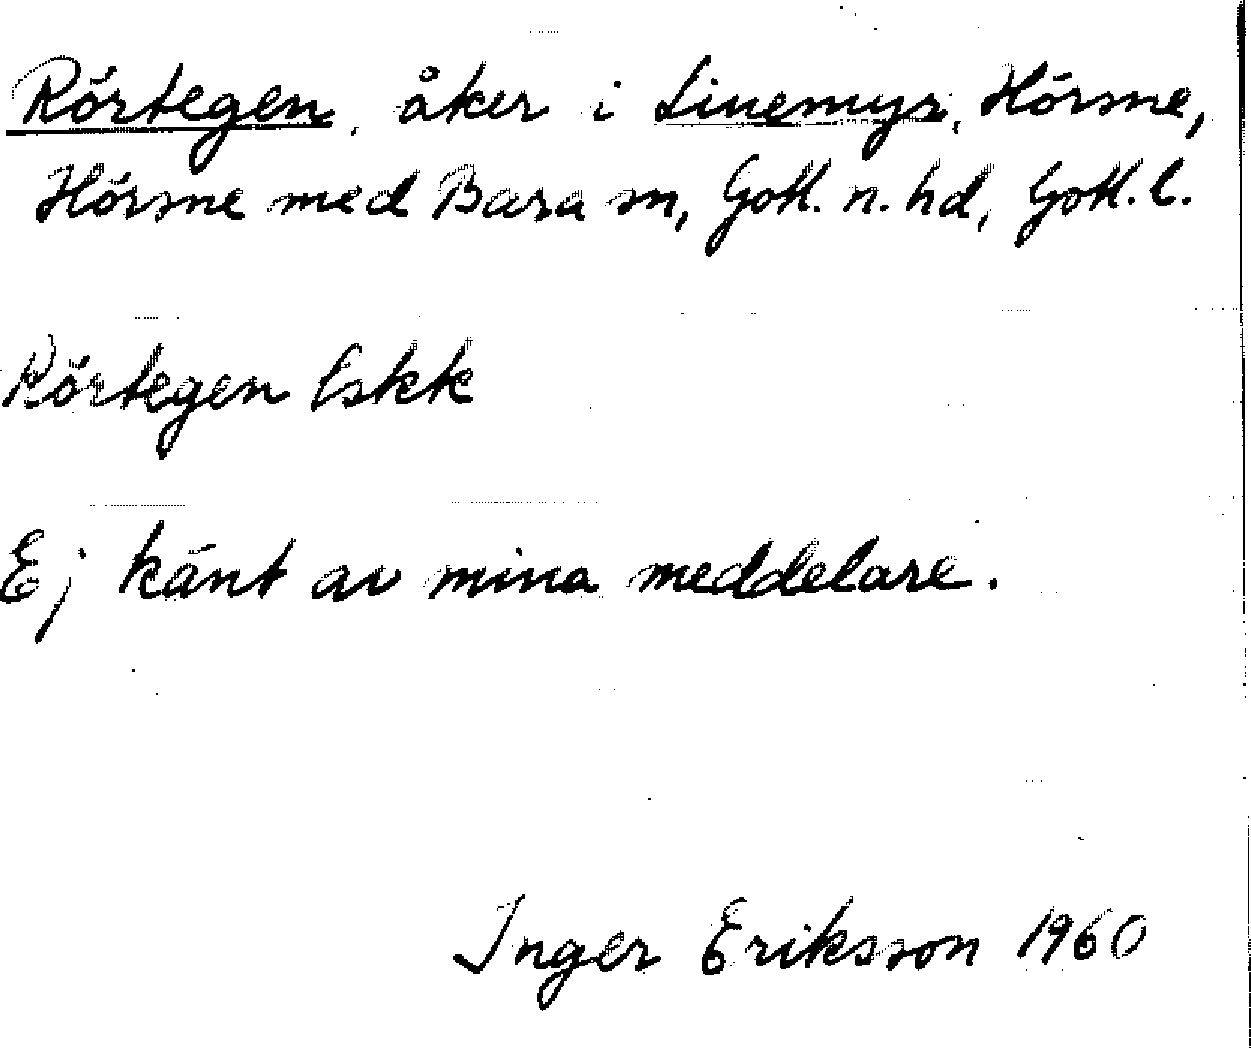 Rörtegen, åker i Linemyr, Hörsne,
Hörsne med Bara sn, Gotl. n. hd, Gotl. l.
Rörtegen Eskk
Ej känt av mina meddelare.
Inger Eriksson 1960